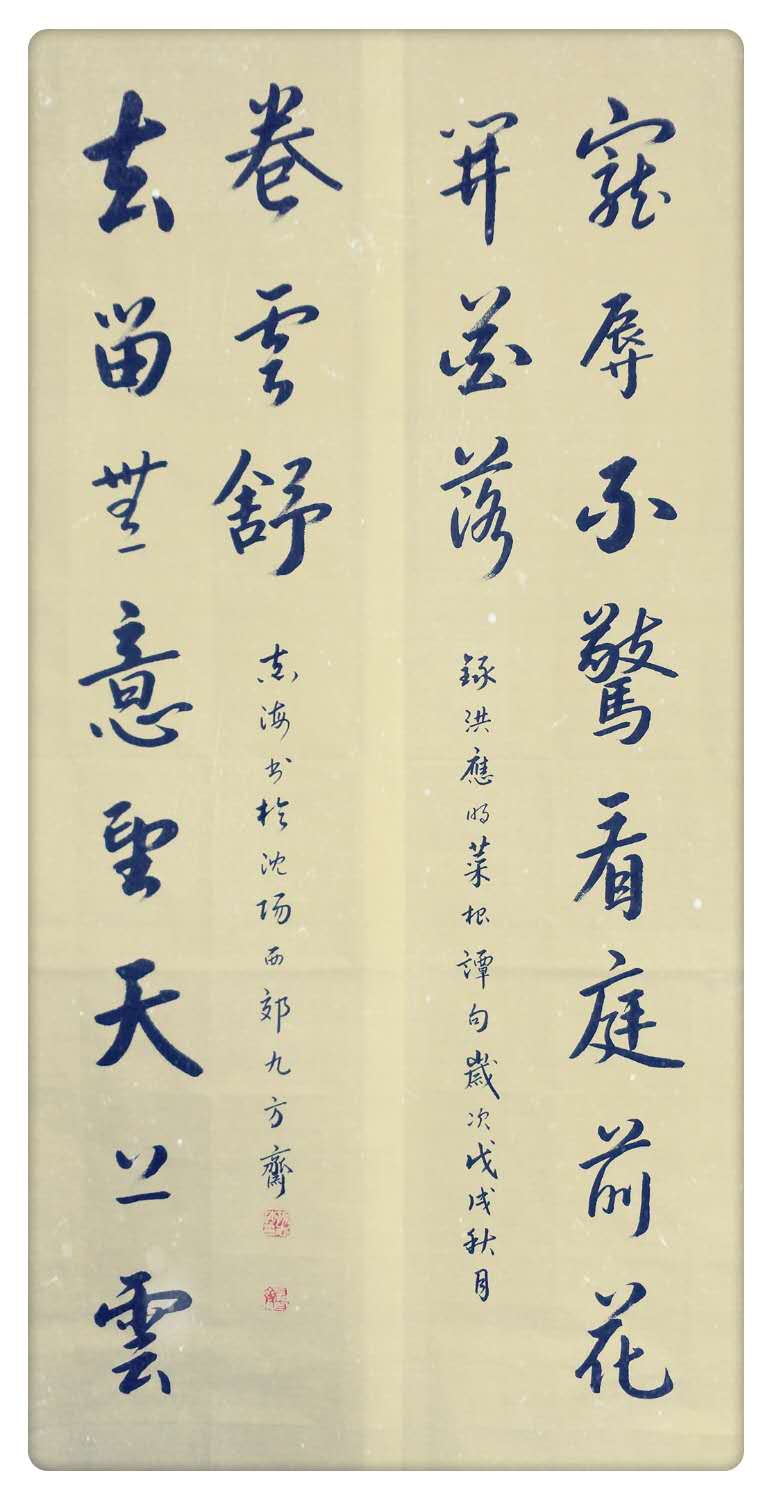 寵辱不驚看庭前花
開花落
錄洪應明菜根譚句歲次戊戌秋月
去留無意望天上雲
卷雲舒
志海书於沈陽西郊九方齋